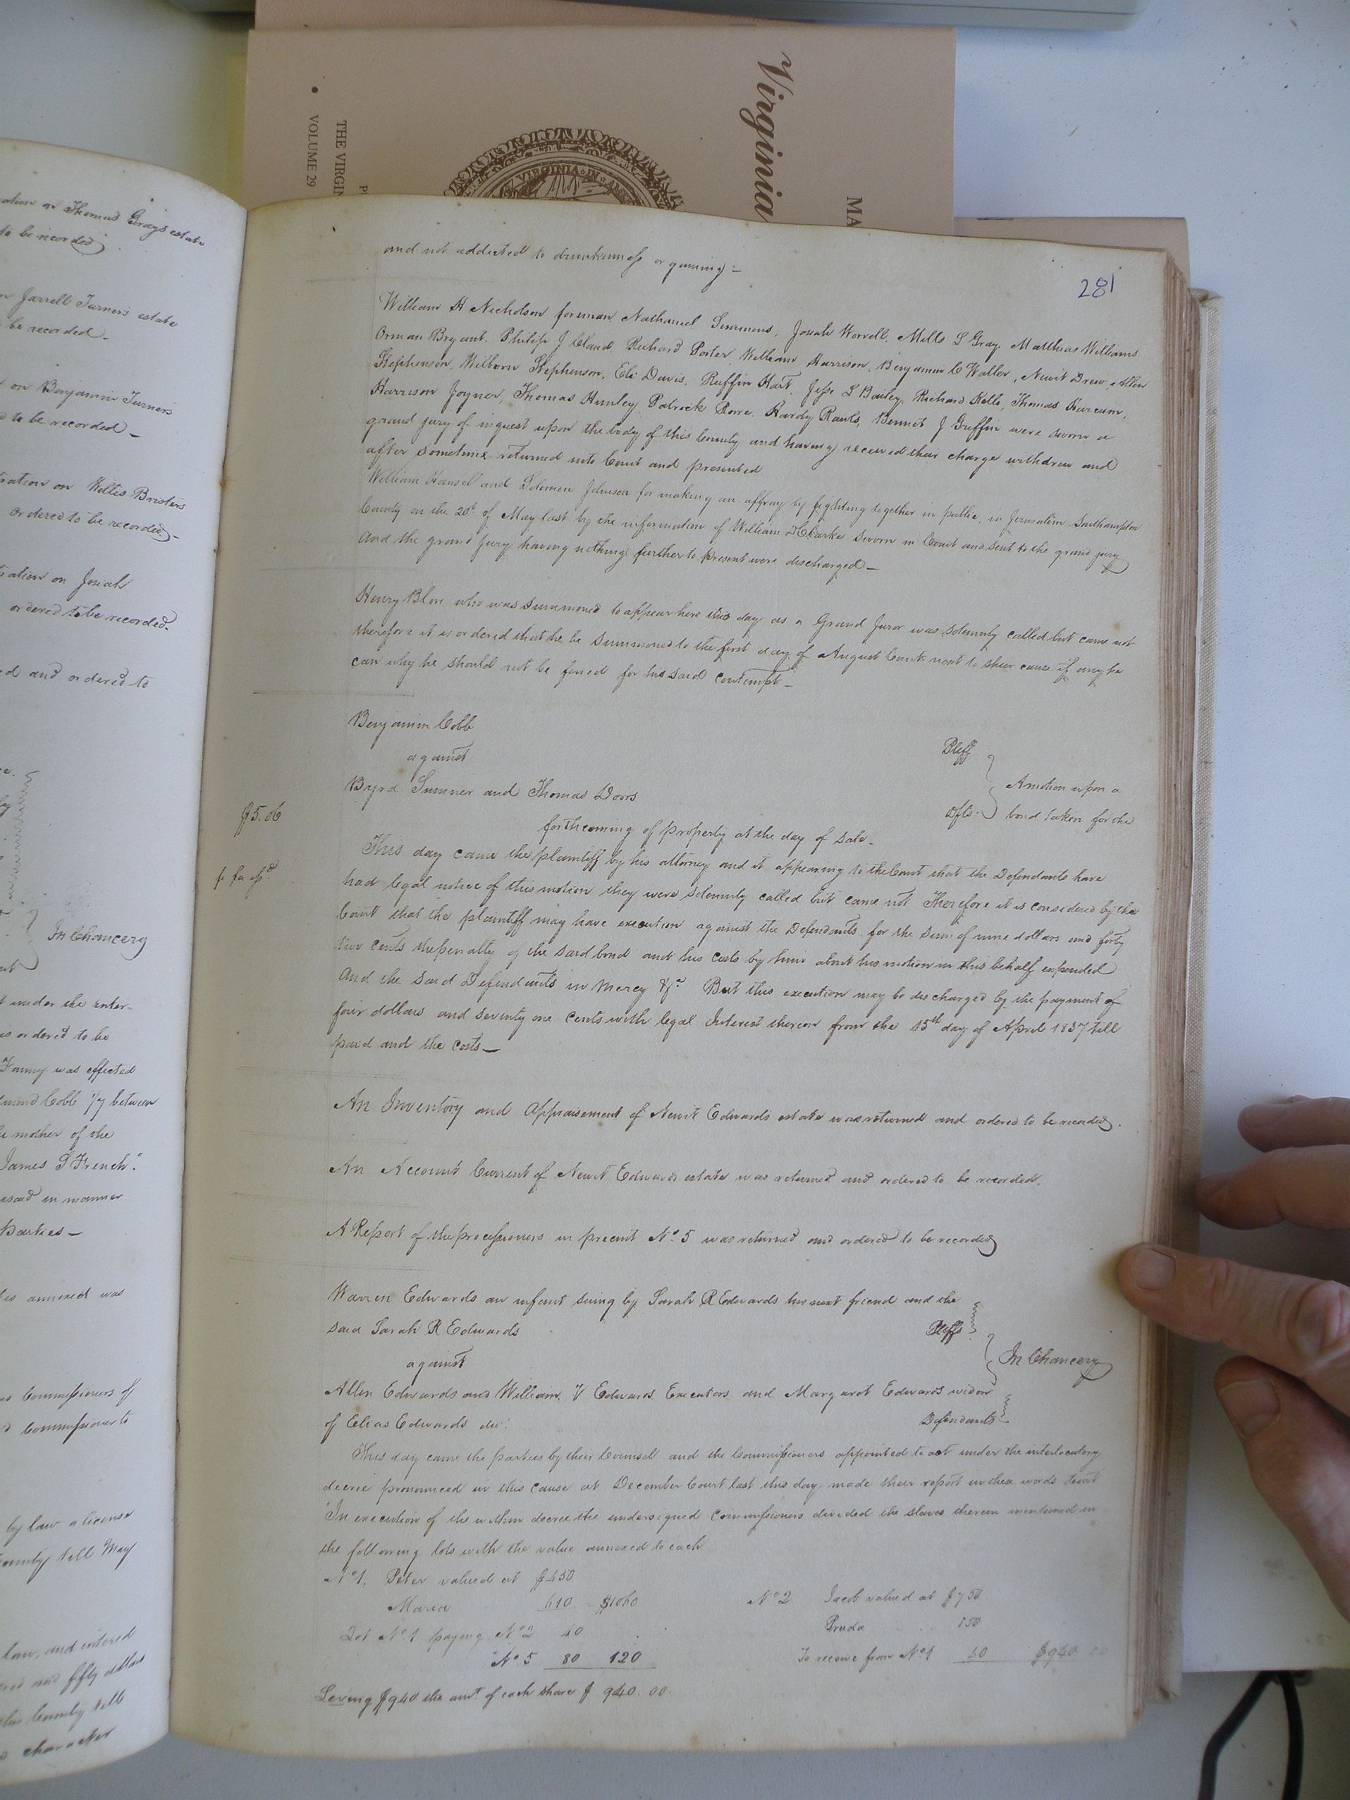 Virginia
MA
THE VIRGIN
VOLUME 29
VIRGINIA IN
281
and not addicted to drunkenness or gaming -
William H Nicholson foreman Nathaniel Simmons, Josiah Worrell, Mills S Gray, Matthias Williams
Orman Bryant, Philip J Claud Richard Porter William Harrison, Benjamin C Waller, Newit Drew, Allen
Stephenson, Wilborn Stephenson, Eli Davis, Ruffin Hart, Jesse L Bailey, Richard Kello, Thomas
Harrison Joyner, Thomas Hunley, Patrick Rowe, Hardy Rawls, Bennit J Griffin were sworn a
grand jury of inquest upon the body of this County and having received their charge withdrew and
after sometime returned into Court and presented
William and Solomon Johnson for making an affray by fighting together in public in Jerusalem Southampton
County on the 20th of May last by the information of William H Clarke sworn in Court and sent to the grand jury
And the grand jury having nothing further to present were discharged -
Henry Blow who was summoned to appear here this day as a Grand Juror was solemnly called but came not
therefore it is ordered that he be summoned to the first day of August Court next to shew cause if any he
can why he should not be fined for his said contempt -
Benjamin Cobb Plff
against
Byrd Sumner and Thomas Doors Dfts
A motion upon a
bond taken for the
$5.06
forthcoming of property at the day of sale -
This day came the plaintiff by his attorney and it appearing to the Court that the Defendants have
fi fa
had legal notice of this motion they were solemnly called but came not Therefore it is considered by the
Court that the plaintiff may have execution against the Defendants for the sum of nine dollars and forty
two cents the penalty of the said bond and his costs by him about his motion in this behalf expended
And the said Defendants in mercy &c. But this execution may be discharged by the payment of
four dollars and seventy one cents with legal Interest thereon from the 15th day of April 1837 till
paid and the costs -
An Inventory and Appraisement of Newit Edwards estate was returned and ordered to be recorded.
An Account Current of Newit Edwards estate was returned and ordered to be recorded.
A Report of the processioners in precinct No. 5 was returned and ordered to be recorded
Warren Edwards an infant suing by Sarah R Edwards his next friend and the
said Sarah R Edwards Plffs
against
In Chancery
Allen Edwards and William V Edwards Executors and Margaret Edwards widow
of Elias Edwards dec. Defendants
This day came the parties by their Counsel and the Commissioners appointed to act under the interlocutory
decree pronounced in this cause at December Court last this day made their report in these words
"In execution of the within decree the undersigned Commissioners divided the slaves therein mentioned in
the following lots with the value annexed to each
No 1. Peter valued at $450
Maria 610 $1060
Lot No 1 paying No 2 40
No 5 80 120
Leving $940 the amt of each share $ 940.00
No 2 Jacob valued at $750
Pruda 150
To receive from No 1 40 $940 00
Thomas Grays estate
to be recorded
Jarrell Turners estate
be recorded -
on Benjamin Turners
to be recorded -
ordered to be recorded -
on Josiah
ordered to be recorded.
and ordered to
In Chancery
under the inter-
ordered to be
Fanny was effected
Cobb 1/7 between
mother of the
James S French.
in manner
Parties -
annexed was
Commissioners of
Commissioner to
by law a license
County till May
law, and entered
and fifty dollars
this County till
character